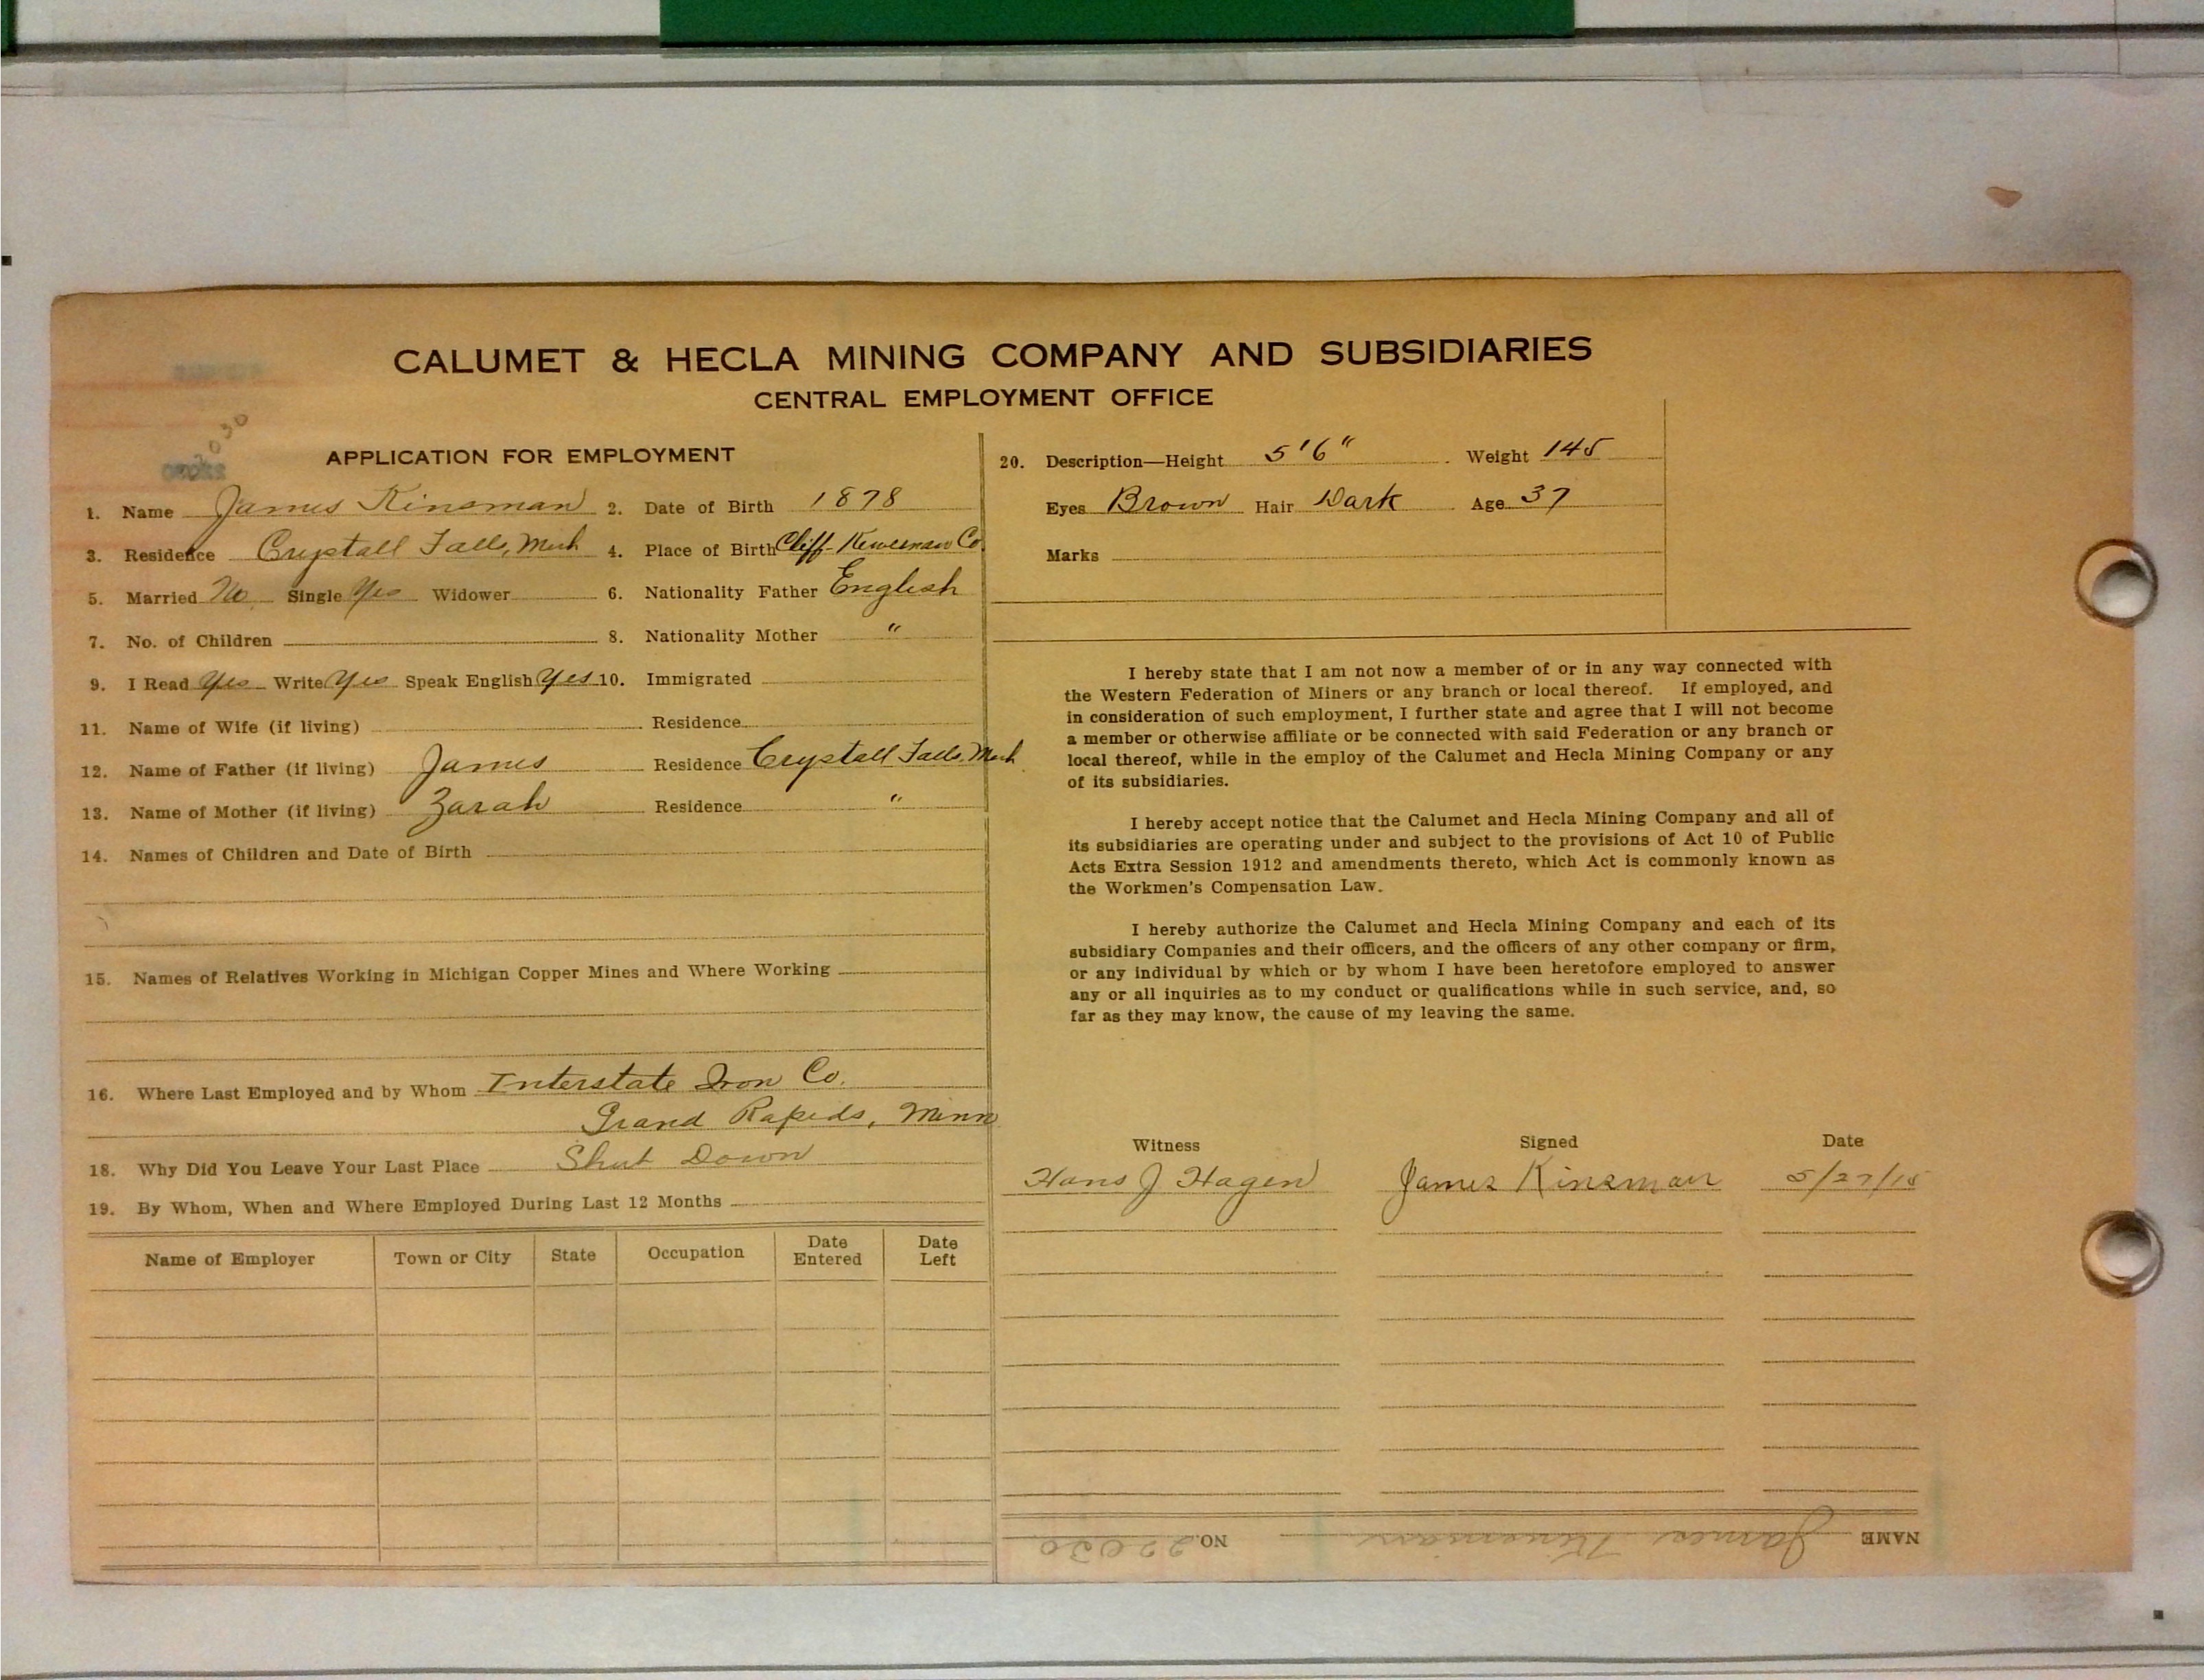 CALUMET & HECLA MINING COMPANY AND SUBSIDIARIES
CENTRAL EMPLOYMENT OFFICE
APPLICATION FOR EMPLOYMENT
1. Name James Kinsman 2. Date of Birth 1878
3. Residence Crystall Falls, Mich 4. Place of Birth Cliff-Keweenaw Co.
5. Married No Single Yes Widower 6. Nationality Father English
7. No. of Children 8. Nationality Mother "
9. I Read Yes Write Yes Speak English Yes 10. Immigrated
11. Name of Wife (if living) Residence
12. Name of Father (if living) James Residence Crystall Falls, Mich
13. Name of Mother (if living) Zarah Residence "
14. Names of Children and Date of Birth
15. Names of Relatives Working in Michigan Copper Mines and Where Working
16. Where Last Employed and by Whom Interstate Iron Co.
Grand Rapids, Minn
18. Why Did You Leave Your Last Place Shut Down
19. By Whom, When and Where Employed During Last 12 Months
Name of Employer Town or City State Occupation Date Entered Date Left
20. Description—Height 5'6" Weight 145
Eyes Brown Hair Dark Age 37
Marks
I hereby state that I am not now a member of or in any way connected with
the Western Federation of Miners or any branch or local thereof. If employed, and
in consideration of such employment, I further state and agree that I will not become
a member or otherwise affiliate or be connected with said Federation or any branch or
local thereof, while in the employ of the Calumet and Hecla Mining Company or any
of its subsidiaries.
I hereby accept notice that the Calumet and Hecla Mining Company and all of
its subsidiaries are operating under and subject to the provisions of Act 10 of Public
Acts Extra Session 1912 and amendments thereto, which Act is commonly known as
the Workmen's Compensation Law.
I hereby authorize the Calumet and Hecla Mining Company and each of its
subsidiary Companies and their officers, and the officers of any other company or firm,
or any individual by which or by whom I have been heretofore employed to answer
any or all inquiries as to my conduct or qualifications while in such service, and, so
far as they may know, the cause of my leaving the same.
Witness Signed Date
Hans J Hagen James Kinsman 5/27/15
NAME James Kinsman NO. 22030